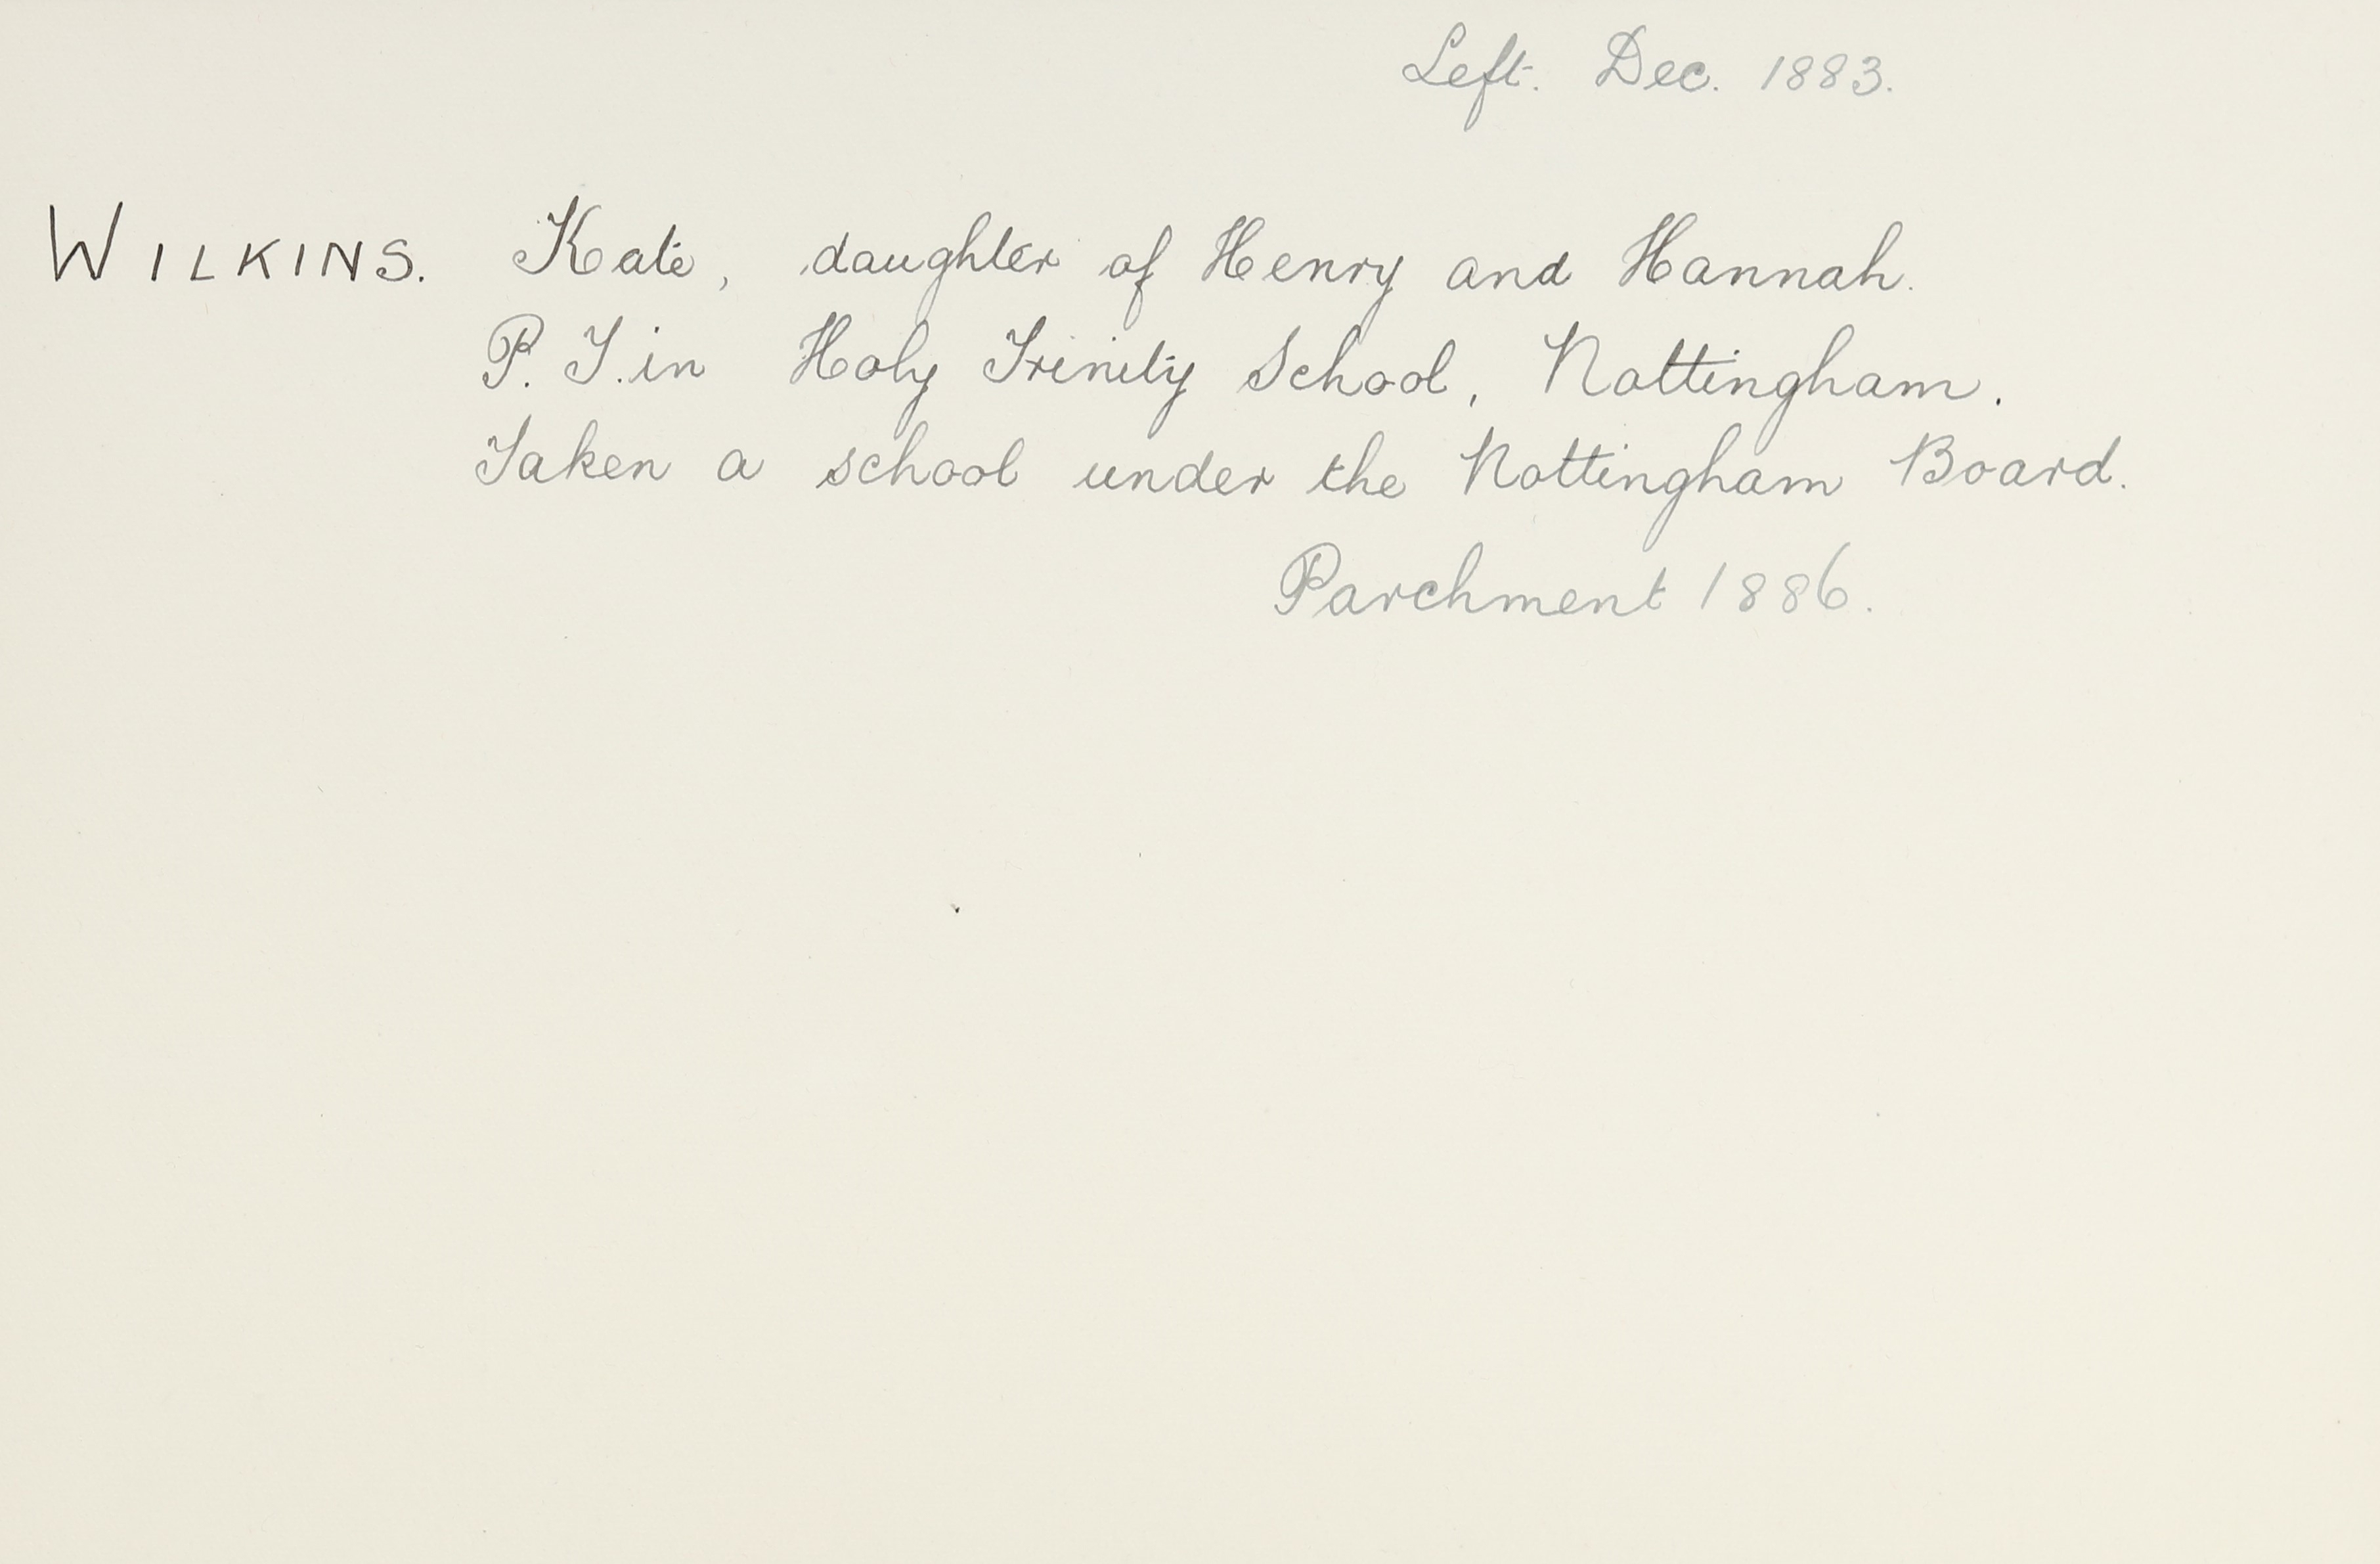 Left. Dec. 1883.
WILKINS. Kate, daughter of Henry and Hannah.
P. T. in Holy Trinity School, Nottingham.
Taken a school under the Nottingham Board.
Parchment 1886.